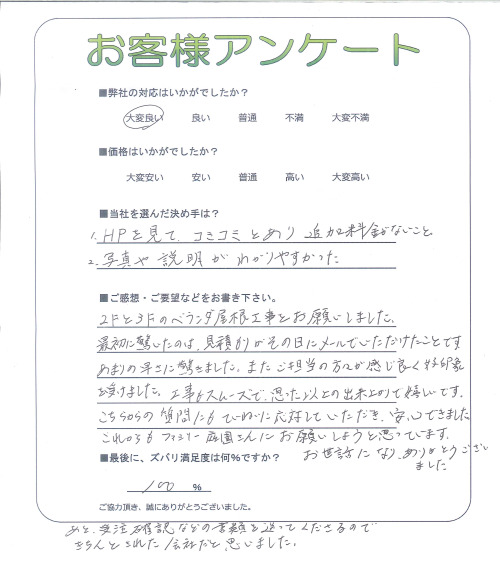 お客様アンケート
■弊社の対応はいかがでしたか？
大変良い 良い 普通 不満 大変不満
■価格はいかがでしたか？
大変安い 安い 普通 高い 大変高い
■当社を選んだ決め手は？
1. HPを見て、コミコミとあり追加料金がないこと、
2. 写真や説明がわかりやすかった
■ご感想・ご要望などをお書き下さい。
2Fと3Fのベランダ屋根工事をお願いしました。
最初に驚いたのは、見積りがその日にメールでいただけたことです
あまりの早さに驚きました。またご担当の方々が感じ良く好印象
を受けました。工事もスムーズで、思った以上の出来上りで嬉しいです。
こちらからの質問にもていねいに応対していただき、安心できました
これからもファミリー庭園さんにお願いしようと思っています。
お世話になり、ありがとうござい
ました
■最後に、ズバリ満足度は何%ですか？
100 %
ご協力頂き、誠にありがとうございました。
あと、受注確認などの書類を送ってくださるので
きちんとされた会社だと思いました。